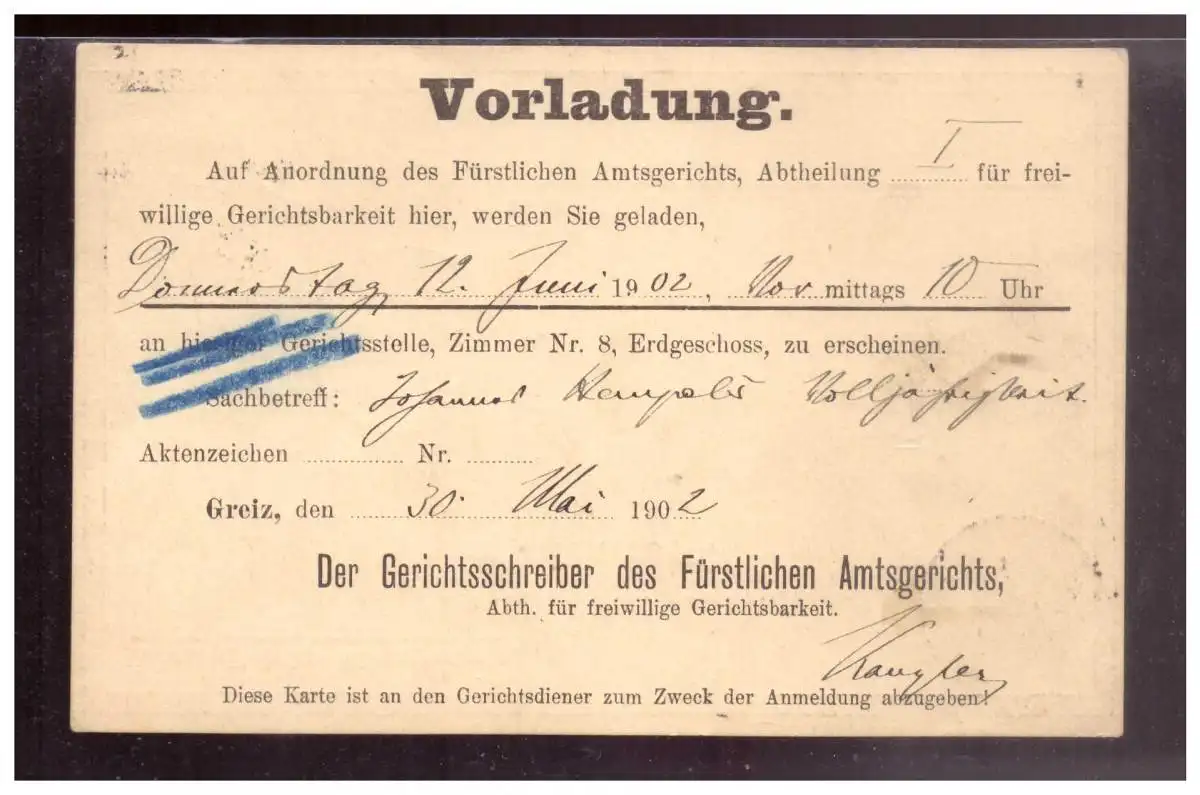 Vorladung.
Auf Anordnung des Fürstlichen Amtsgerichts, Abtheilung I für frei-
willige Gerichtsbarkeit hier, werden Sie geladen,
Donnerstag, 12. Juni 1902, Vormittags 10 Uhr
an hiesiger Gerichtsstelle, Zimmer Nr. 8, Erdgeschoss, zu erscheinen.
Sachbetreff: Johannes Volljährigkeit.
Aktenzeichen Nr.
Greiz, den 30. Mai 1902
Der Gerichtsschreiber des Fürstlichen Amtsgerichts,
Abth. für freiwillige Gerichtsbarkeit.
Diese Karte ist an den Gerichtsdiener zum Zweck der Anmeldung abzugeben!